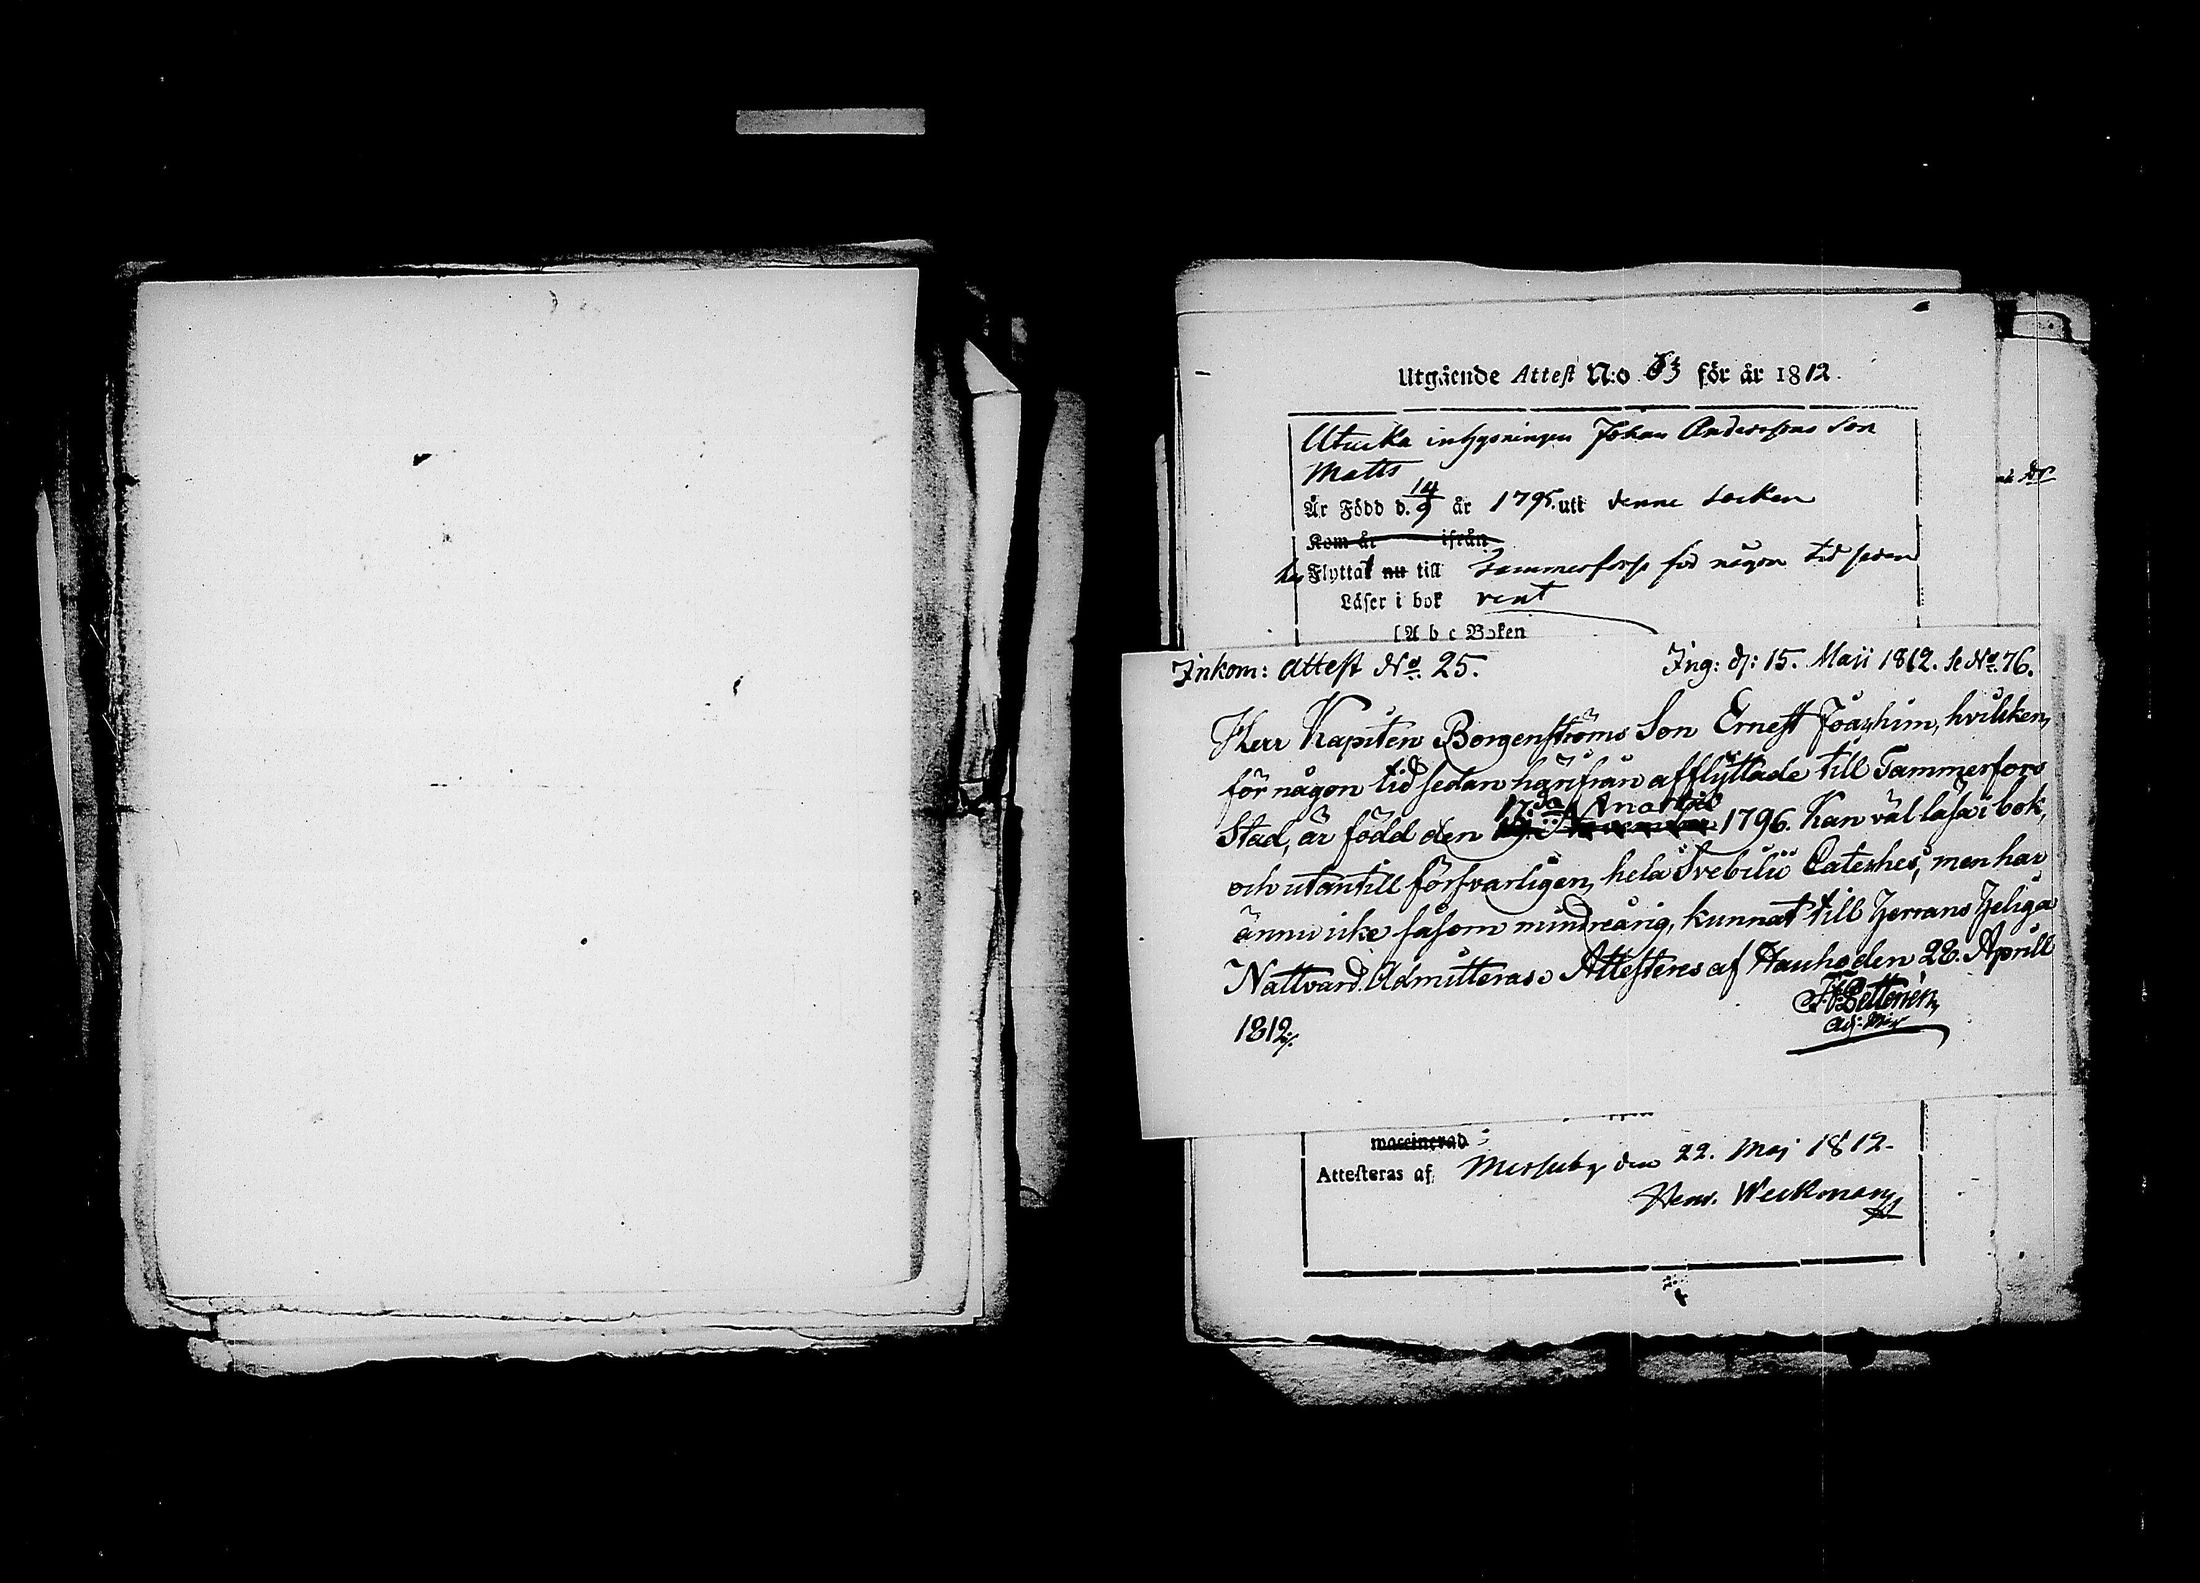 Utgående Attest N:o 63 för år 1812.
inhysningen Johan Anderssons Son
Matts
Är Född d. 14/9 år 1795. utt denne Socken
Kom år ifrån
Flyttat nu till Tammerfors för någon tid sedan
Läser i bok rent
A b c Boken
Inkom: Attest No. 25. Ing: d: 15. Maji 1812. Se No. 76.
Herr Kapiten Borgenströms Son Ernest Joachim, hvilcken,
för någon tid sedan härifrån afflyttade till Tammerfors
Stad, är född den 1796. Kan väl läsa i bok,
och utantill försvarligen, hela Svebilii Cateches; men har
ännu icke såsom mindreårig, kunnat till Herrans Heliga
Nattvard Admitteras. Attesteres af Hauho den 28. Aprill
1812.
maccinerad
Attesteras af den 22. Maj 1812.
Henr. Weckman